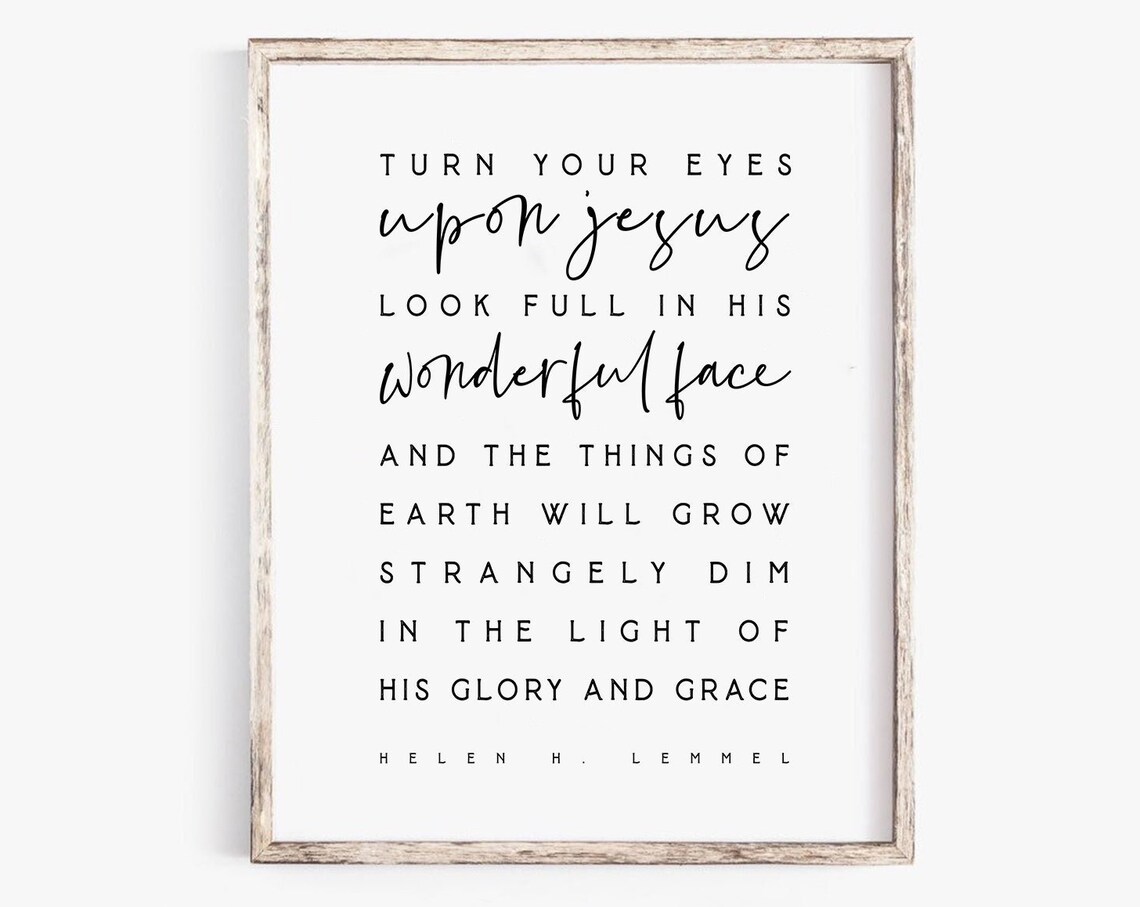 TURN YOUR EYES
upon jesus
LOOK FULL IN HIS
wonderful face
AND THE THINGS OF
EARTH WILL GROW
STRANGELY DIM
IN THE LIGHT OF
HIS GLORY AND GRACE
HELEN H. LEMMEL